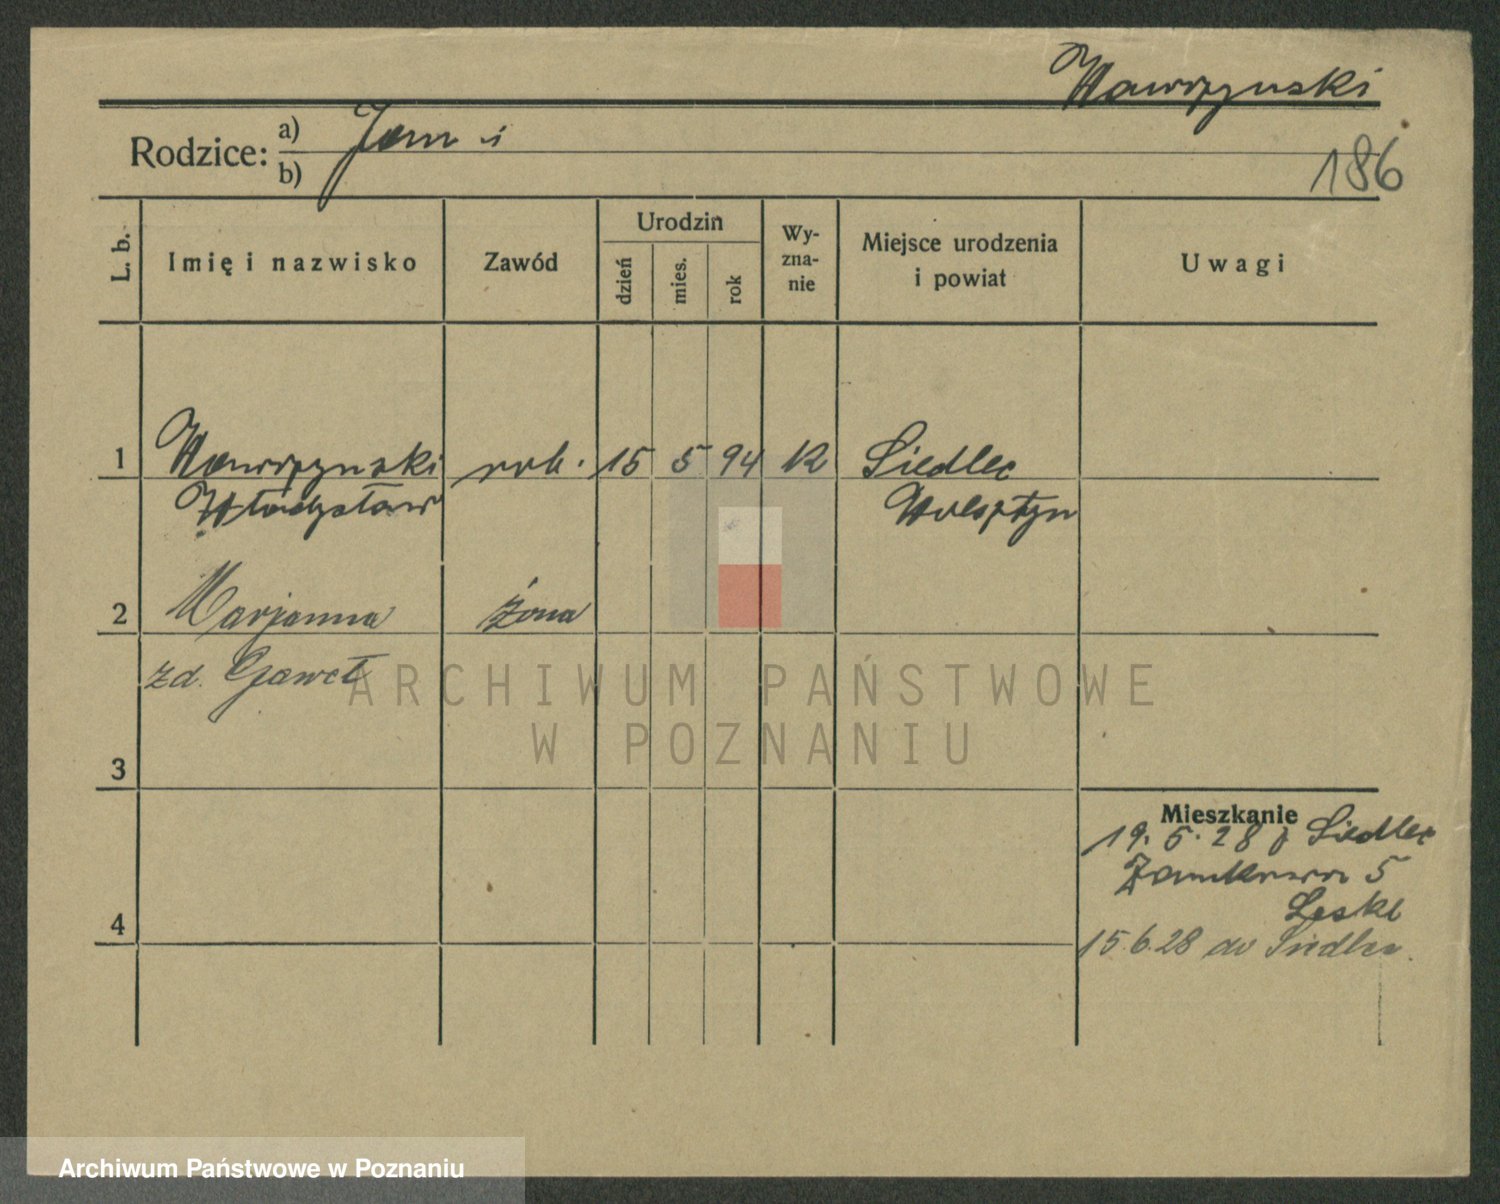 Wawrzynski
Rodzice: a) Jan i
b)
186
L. b.
Imię i nazwisko
Zawód
Urodzin
dzień
mies.
rok
Wy-
zna-
nie
Miejsce urodzenia
i powiat
Uwagi
1 Wawrzynski rob. 15 5 94 K Siedlec
Władysław Wolsztyn
2 Marjanna żona
zd. Gaweł
ARCHIWUM PAŃSTWOWE
W POZNANIU
3
Mieszkanie
19. 5. 28 z Siedlec
Zamkowa 5
4
15.6.28 do Siedlec.
Archiwum Państwowe w Poznaniu